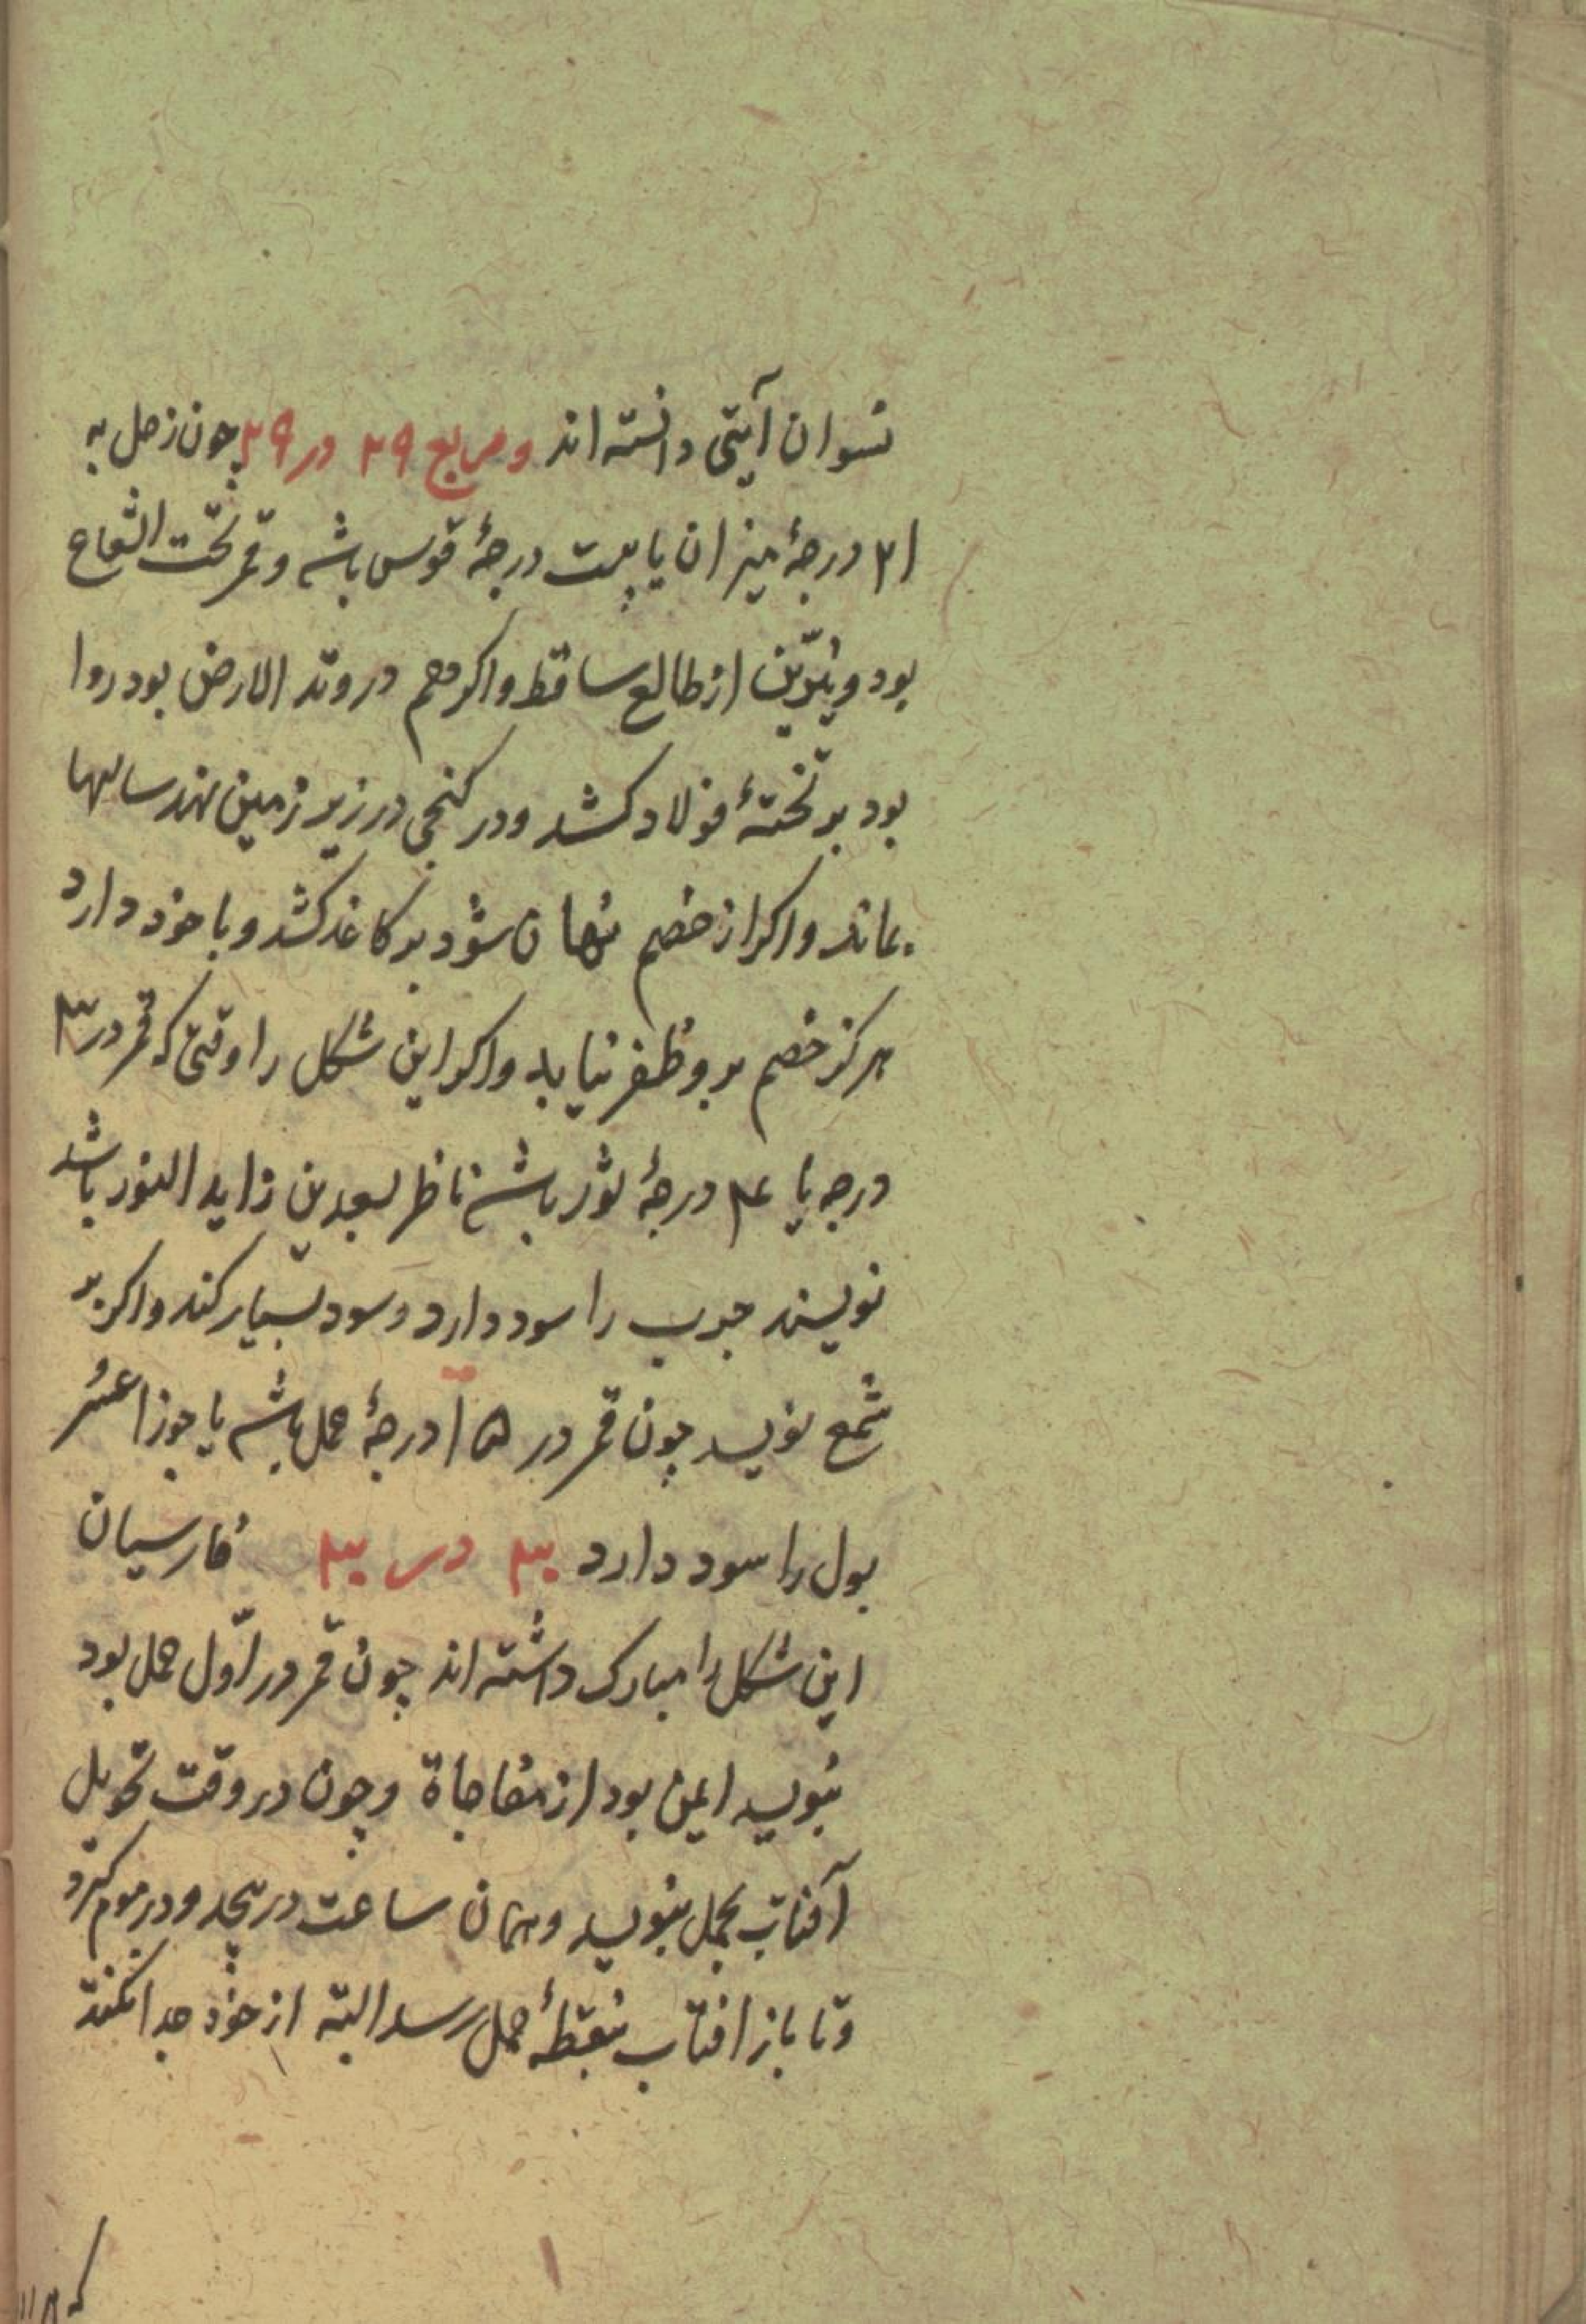 نسوان آیتی دانسته اند ومربع ۲۹ در ۲۹ چون زحل به
۲۱ درجهٔ میزان یا بیست درجهٔ قوس باشد و قمر تحت الشعاع
بود و نیّرین از طالع ساقط واکر هم در وتد الارض بود روا
بود بر تختهٔ فولاد کشد ودر کنجی در زیر زمین نهد سالها
بماند واکر از خصم نهان شود بر کاغذ کشد و با خود دارد
هرکز خصم برو ظفر نیابد واکر این شکل را وقتی که قمر در ۳
درجه یا ۲۴ درجهٔ ثور باشد ناظر بسعدین زاید النور باشد
نویسند جرب را سود دارد وسود بسیار کند واکر بر
شمع نویسد چون قمر در ۱۵ درجهٔ حمل باشد یا جوزا عسر
بول را سود دارد ۳۰ در ۳۰ فارسیان
این شکل را مبارک داشته اند چون قمر در اوّل حمل بود
بنویسد ایمن بود از مفاجاة وچون در وقت تحویل
آفتاب بحمل بنویسد وهمان ساعت در پیچد ودر موم کیرد
وتا باز افتاب بنقطهٔ حمل رسد البته از خود جدا نکند
که